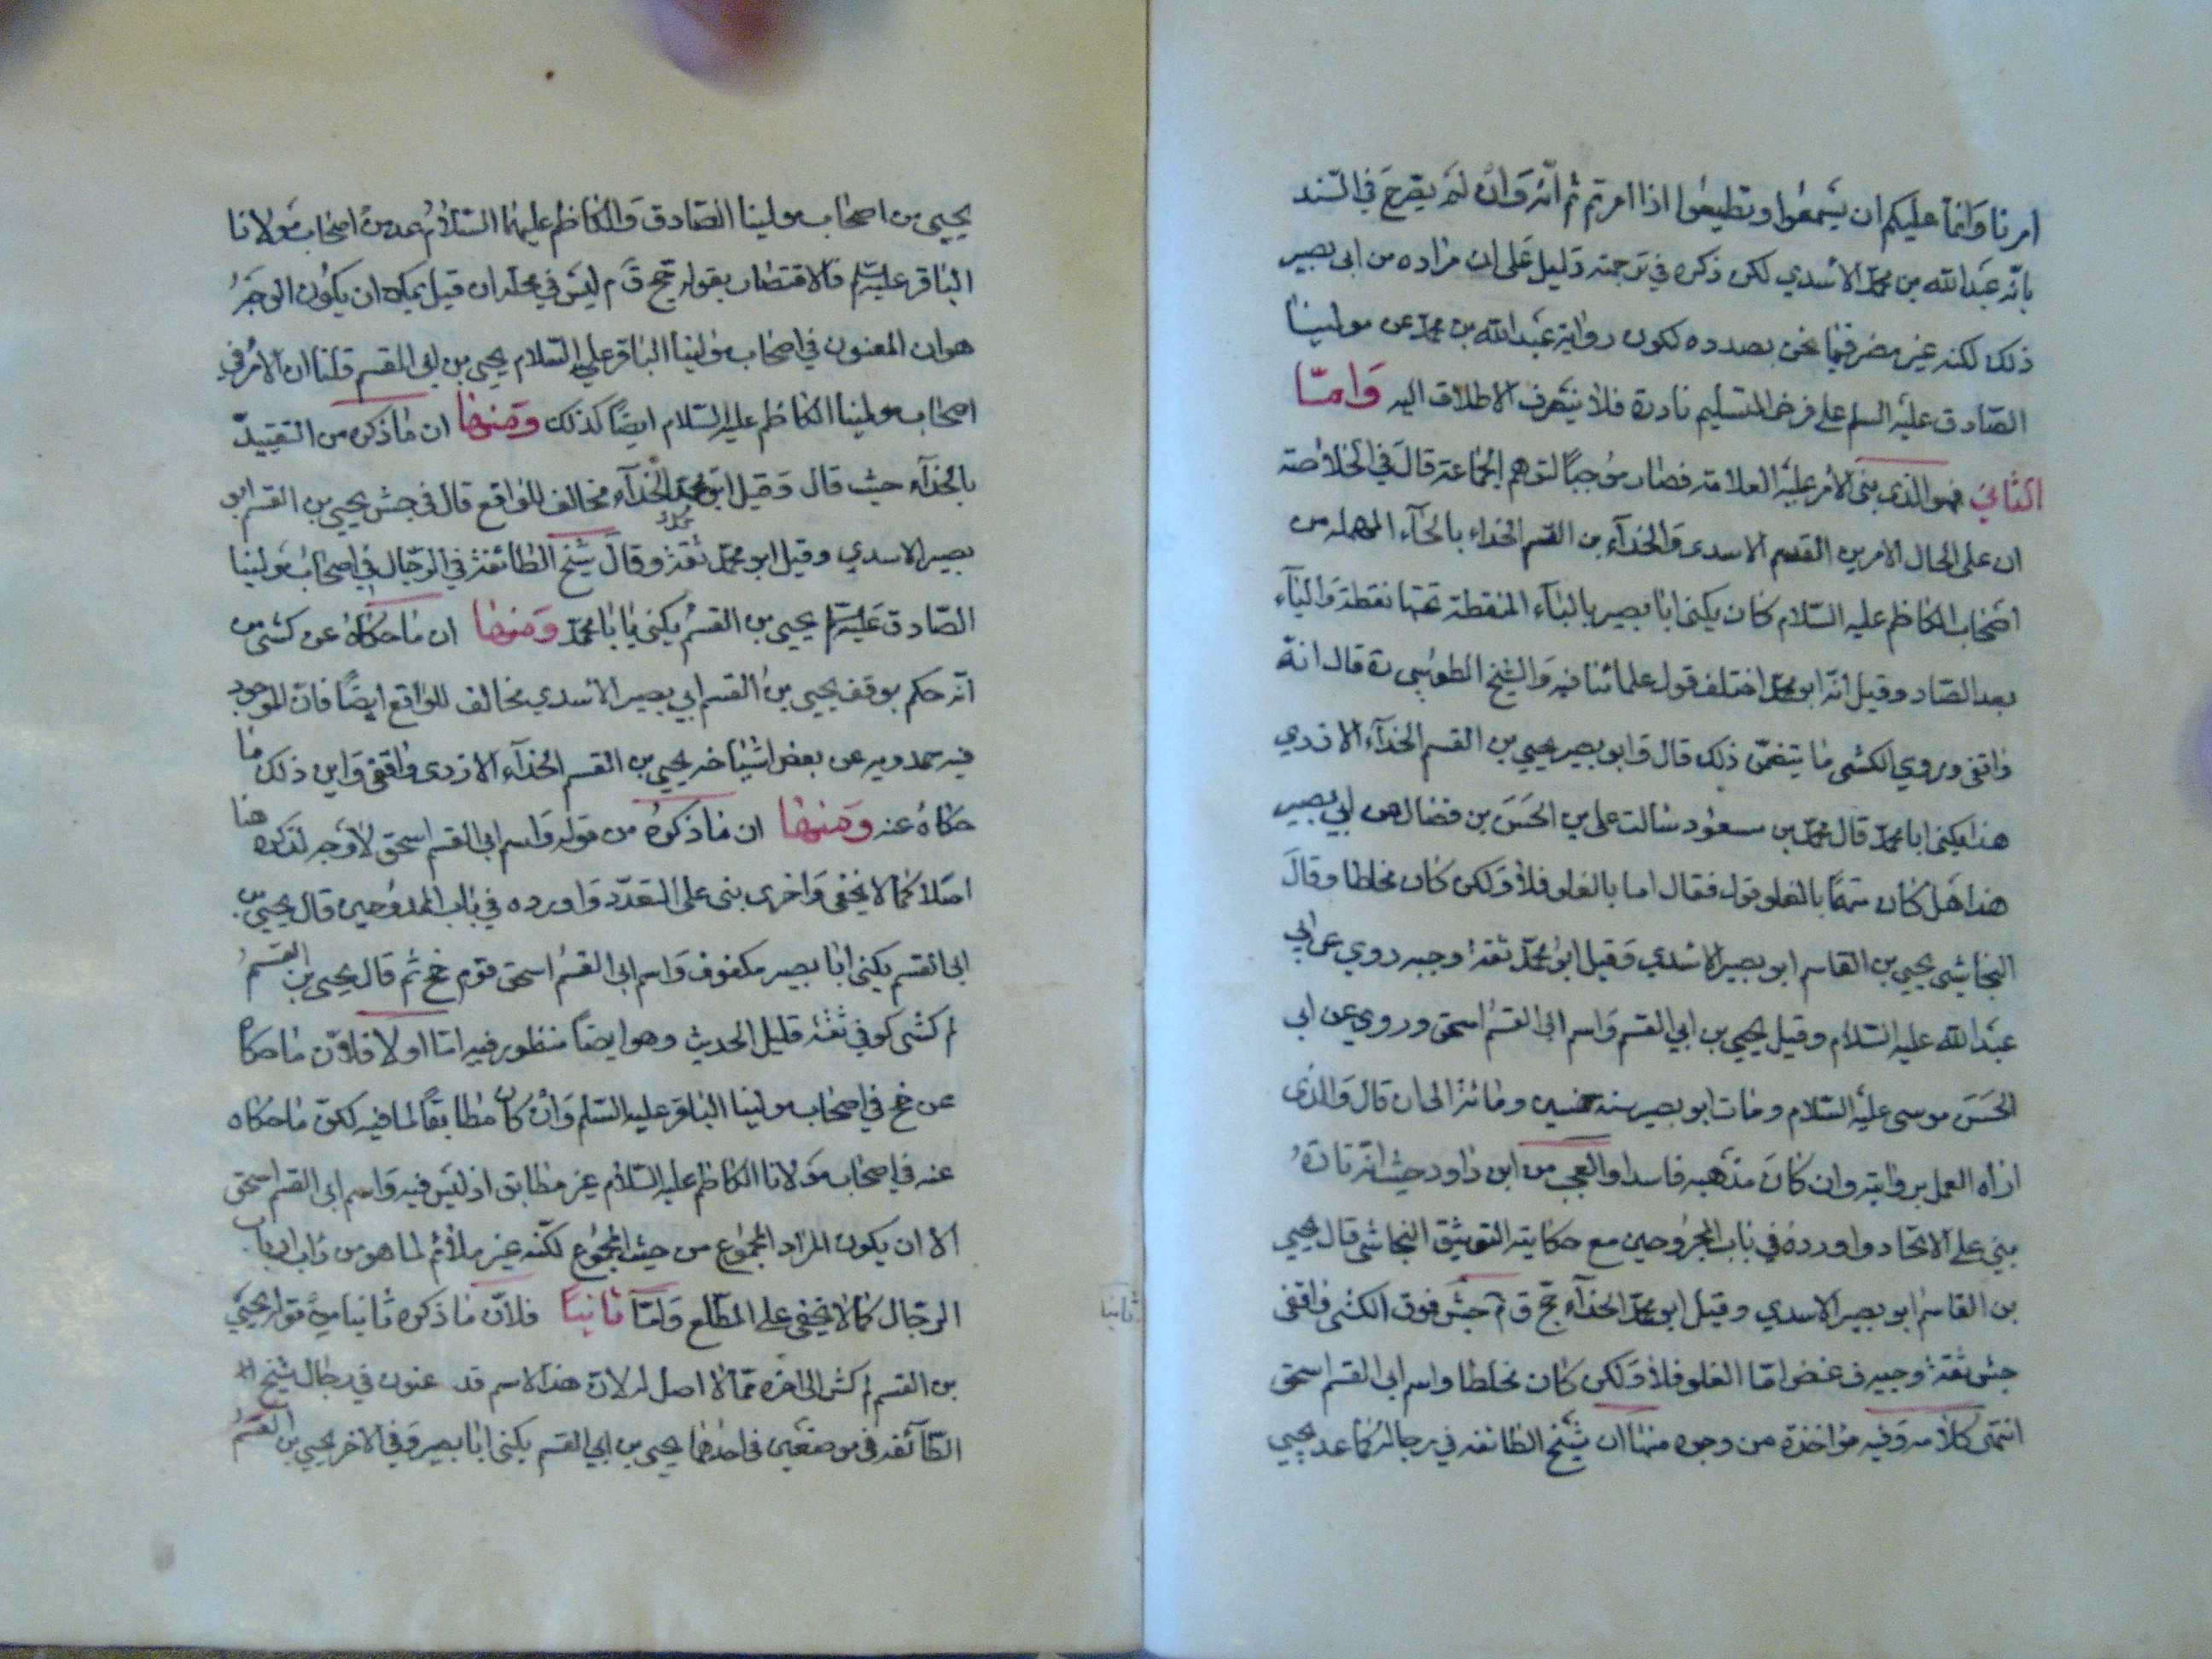 امرنا وانما عليكم ان تسمعوا وتطيعوا اذا امرتم ثم انه وان لم يصرح في السند
بانه عبد الله بن محمد الاسدي لكن ذكره في ترجمته دليل على ان مراده من ابي بصير
ذلك لكنه غير مضر فيما نحن بصدده لكون رواية عبد الله بن محمد عن مولينا
الصادق عليه السلم على فرض التسليم نادرة فلا ينصرف الاطلاق اليه واما
الثاني فهو الذي بنى الامر عليه العلامة فصار موجبا لتوهم الجماعة قال في الخلاصة
ان على الحال الامر بن القسم الاسدي والحذآء بن القسم الحذاء بالحآء المهملة من
اصحاب الكاظم عليه السلام كان يكنى ابا بصير بالبآء المنقطة تحتها نقطة واليآء
بعد الصاد وقيل انه ابو محمد اختلف قول علمائنا فيه والشيخ الطوسي ره قال انه
واقفى وروى الكشى ما يتضمن ذلك قال وابو بصير يحيى بن القسم الحذآء الازدي
هذا يكنى ابا محمد قال محمد بن مسعود سالت على بن الحسن بن فضال عن ابي بصير
هذا هل كان متهما بالغلو فقال اما بالغلو فلا ولكن كان مخلطا وقال
النجاشى يحيى بن القاسم ابو بصير الاسدي وقيل ابو محمد ثقة وجيه روى عن ابي
عبد الله عليه السلام وقيل يحيى بن ابي القسم واسم ابي القسم اسحق وروى عن ابي
الحسن موسى عليه السلام ومات ابو بصير سنة خمسين ومائة الى ان قال والذى
اراه العمل بروايته وان كان مذهبه فاسدا والعجب من ابن داود حيث انه تارة
بنى على الاتحاد واورده في باب المجروحين مع حكايته التوثيق النجاشى قال يحيى
بن القاسم ابو بصير الاسدي وقيل ابو محمد الحذآء جخ ق م جش فوق الكشى واقفى
جش ثقة وجيه غض اما الغلو فلا ولكن كان مخلطا واسم ابى القسم اسحق
انتهى كلامه وفيه مؤاخذة من وجوه منها ان شيخ الطائفه في رجاله كما عد يحيى
يحيى بن اصحاب مولينا الصادق والكاظم عليهما السلام عد من اصحاب مولانا
الباقر عليه السلم فالاقتصار بقوله جخ ق م ليس في محله ان قيل يمكن ان يكون الوجه
هو ان المعنون في اصحاب مولينا الباقر عليه السلام يحيى بن ابى القسم قلنا ان الامر في
اصحاب مولينا الكاظم عليه السلام ايضا كذلك ومنها ان ما ذكره من التقييد
بالحذآء حيث قال وقيل ابو محمد الحذآء مخالف للواقع قال في جش يحيى بن القسم ابو
بصير الاسدي وقيل ابو محمد ثقة وقال شيخ الطائفة في الرجال في اصحاب مولينا
الصادق عليه السلم يحيى بن القسم يكنى بابا محمد ومنها ان ما حكاه عن كشى من
انه حكم بوقف يحيى بن القسم ابي بصير الاسدي مخالف للواقع ايضا فان الموجود
فيه حمدويه عن بعض اشياخه يحيى بن القسم الحذآء الازدى واقفى واين ذلك ما
حكاه عنه ومنها ان ما ذكره من قوله واسم ابى القسم اسحق لا وجه لذكره هنا
اصلا كما لا يخفى واخرى بنى على التعدد واورده في باب الممدوحين قال يحيى بن
ابى القسم يكنى ابا بصير مكفوف واسم ابى القسم اسحق قوم جخ ثم قال يحيى بن القسم
لم كشى كوفي ثقة قليل الحديث وهو ايضا منظور فيه اما اولا فلان ما حكاه
عن جخ في اصحاب مولينا الباقر عليه السلم وان كان مطابقا لما فيه لكن ما حكاه
عنه في اصحاب مولانا الكاظم عليه السلام غير مطابق اذ ليس فيه واسم ابى القسم اسحق
الا ان يكون المراد المجموع من حيث المجموع لكنه غير ملائم لما هو من داب ارباب
الرجال كما لا يخفى على المطلع واما ثانيا فلان ما ذكره ثانيا من قوله يحيى
ثانيا
بن القسم لم كش الى اخره مما لا اصل له لان هذا الاسم قد عنون في رجال شيخ
الطآئفه في موضعين في احدهما يحيى بن ابي القسم يكنى ابا بصير وفي الاخر يحيى بن القسم